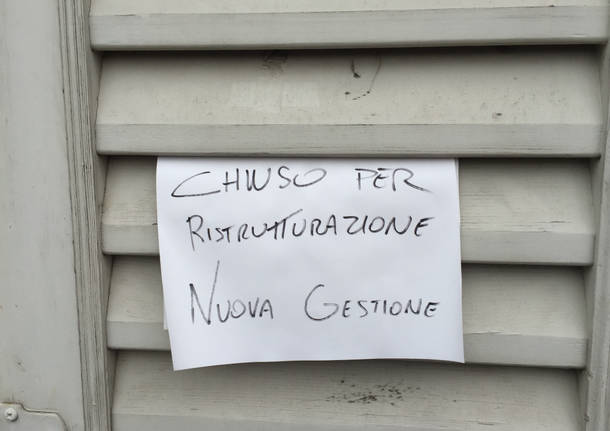 CHIUSO PER
RISTRUTTURAZIONE
NUOVA GESTIONE